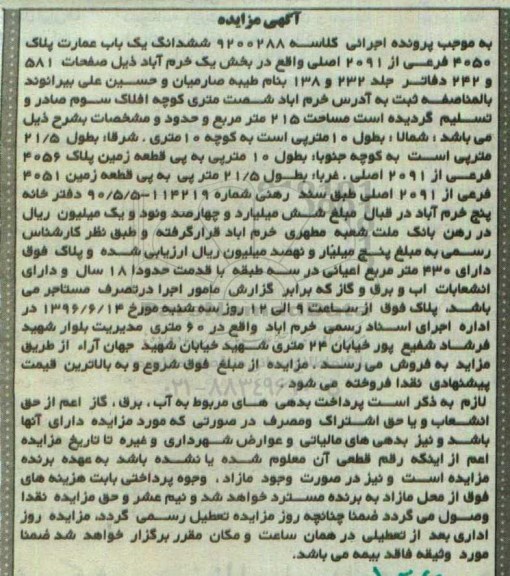 آگهی مزایده
به موجب پرونده اجرائی کلاسه ۹۲۰۰۲۸۸ ششدانگ یک باب عمارت پلاک
۴۰۵۰ فرعی از ۲۰۹۱ اصلی واقع در بخش یک خرم آباد ذیل صفحات ۵۸۱
و ۲۴۲ دفاتر جلد ۲۳۲ و ۱۳۸ بنام طیبه صارمیان و حسین علی بیرانوند
بالمناصفه ثبت به آدرس خرم اباد شصت متری کوچه افلاک سوم صادر و
تسلیم گردیده است مساحت ۲۱۵ متر مربع و حدود و مشخصات بشرح ذیل
می باشد : شمالا : بطول ۱۰ مترپی است به کوچه ۱۰ متری . شرقا: بطول ۲۱/۵
مترپی است به کوچه جنوبا: بطول ۱۰ مترپی به پی قطعه زمین پلاک ۴۰۵۶
فرعی از ۲۰۹۱ اصلی . غربا: بطول ۲۱/۵ متر پی به پی قطعه زمین ۴۰۵۱
فرعی از ۲۰۹۱ اصلی طبق سند رهنی شماره ۱۱۴۲۱۹-۹۰/۵/۵ دفتر خانه
پنج خرم آباد در قبال مبلغ شش میلیارد و چهارصد ونود و یک میلیون ریال
در رهن بانک ملت شعبه مطهری خرم اباد قرارگرفته و طبق نظر کارشناس
رسمی به مبلغ پنج میلیارد و نهصد میلیون ریال ارزیابی شده و پلاک فوق
دارای ۴۳۰ متر مربع اعیانی در سه طبقه با قدمت حدودا ۱۸ سال و دارای
انشعابات اب و برق و گاز که برابر گزارش مامور اجرا درتصرف مستاجر می
باشد. پلاک فوق از ساعت ۹ الی ۱۲ روز سه شنبه مورخ ۱۳۹۶/۶/۱۴ در
اداره اجرای اسناد رسمی خرم اباد واقع در ۶۰ متری مدیریت بلوار شهید
فرشاد شفیع پور خیابان ۲۴ متری شهید خیابان شهید جهان آراء از طریق
مزاید به فروش می رسد . مزایده از مبلغ فوق شروع و به بالاترین قیمت
پیشنهادی نقدا فروخته می شود
لازم به ذکر است پرداخت بدهی های مربوط به آب ، برق ، گاز اعم از حق
انشعاب و یا حق اشتراک ومصرف در صورتی که مورد مزایده دارای آنها
باشد و نیز بدهی های مالیاتی و عوارض شهرداری و غیره تا تاریخ مزایده
اعم از اینکه رقم قطعی آن معلوم شده یا نشده باشد به عهده برنده
مزایده است و نیز در صورت وجود مازاد ، وجوه پرداختی بابت هزینه های
فوق از محل مازاد به برنده مسترد خواهد شد و نیم عشر و حق مزایده نقدا
وصول می گردد ضمنا چنانچه روز مزایده تعطیل رسمی گردد، مزایده روز
اداری بعد از تعطیلی در همان ساعت و مکان مقرر برگزار خواهد شد ضمنا
مورد وثیقه فاقد بیمه می باشد.